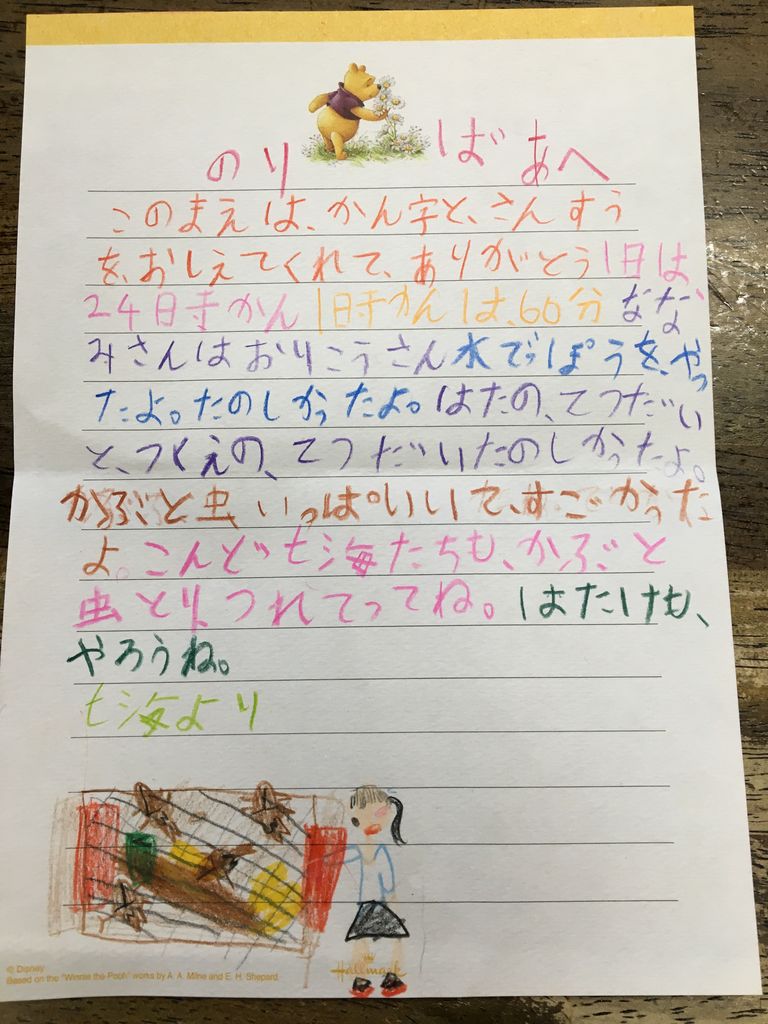 のり ばあへ
このまえは、かん字と、さんすう
を、おしえてくれて、ありがとう1日は、
24日寺かん1日寺かんは、60分なな
みさんはおりこうさん水でっぽうを、やっ
たよ。たのしかったよ。はたの、てつだい
と、つくえの、てつだいたのしかったよ。
かぶと虫いっぱいいて、すごかった
よ。こんど七海たちも、かぶと
虫とりつれてってね。はたけも、
やろうね。
七海より
© Disney
Based on the "Winnie the Pooh" works by A. A. Milne and E. H. Shepard.
Hallmark